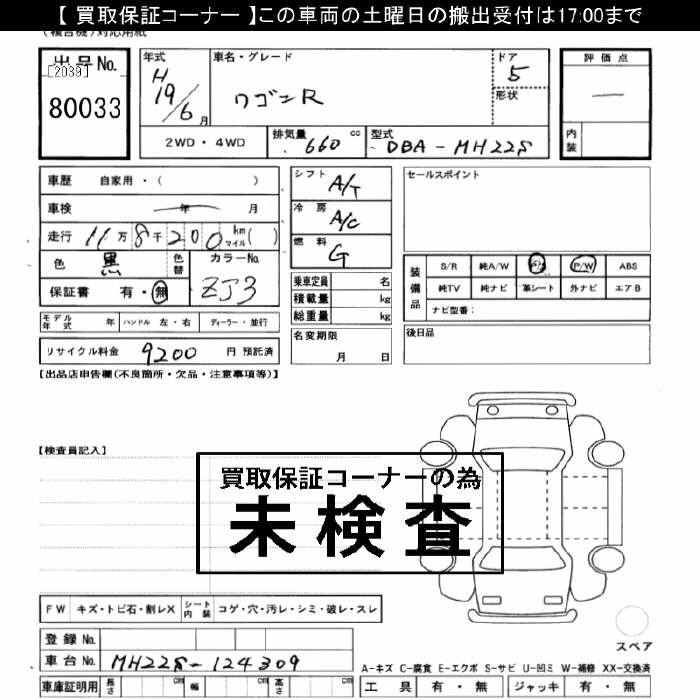 【 買取保証コーナー 】この車両の土曜日の搬出受付は17:00まで
出品No.
[2039]
80033
年式
H19/6月
車名・グレード
ワゴンR
ドア
5
形状
評価点
—
内装
2WD・4WD
排気量 660 cc
型式 DBA-MH22S
車歴 自家用・( )
車検 年 月
走行 11万8千200 km マイル( )
色 黒 色替
カラーNo. ZJ3
保証書 有・無
シフト A/T
冷房 A/C
燃料 G
乗車定員 名
積載量 kg
総重量 kg
セールスポイント
装備品
S/R 純A/W P/S P/W ABS
純TV 純ナビ 革シート 外ナビ エアB
ナビ型番:
モデル年式 年 ハンドル 左・右 ディーラー・並行
リサイクル料金 9200 円 預託済
名変期限 月 日
後日品
【出品店申告欄(不良箇所・欠品・注意事項等)】
【検査員記入】
買取保証コーナーの為
未検査
FW キズ・トビ石・割レX シート内装 コゲ・穴・汚レ・シミ・破レ・スレ
スペア
登録No.
車台No. MH22S-124309
A-キズ C-腐食 E-エクボ S-サビ U-凹ミ W-補修 XX-交換済
車庫証明用 長さ cm 幅 cm 高さ cm
工具 有・無 ジャッキ 有・無